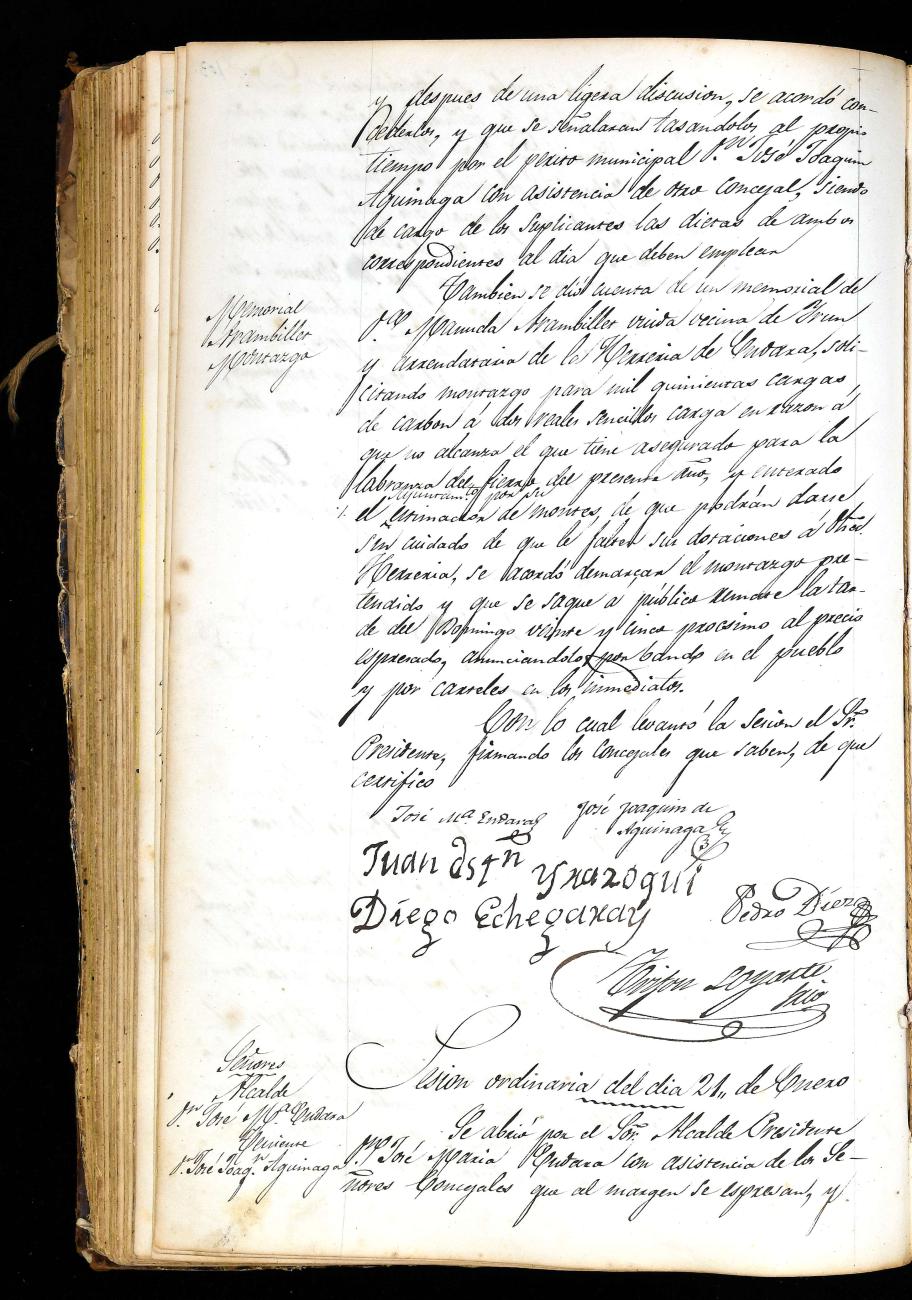 y despues de una ligera discusion, se acordó con-
cederlos, y que se señalaran tasándolos al propio
tiempo por el perito municipal D.n José Joaquin
Aguinaga con asistencia de otro concejal, siendo
de cargo de los suplicantes las dietas de ambos
correspondientes al dia que deben emplear
Memorial
Arambillet
Montazgo
Tambien se dió cuenta de un memorial de
D.ª Manuela Arambillet viuda vecina de Irun
y arrendataria de la Herreria de Endara, soli-
citando montazgo para mil quinientas cargas
de carbon á dos reales sencillos carga en razon á
que no alcanza el que tiene asegurado para la
labranza del fierro del presente año, y enterado
Ayuntam.to por su
el estimacion de montes, de que podrán darse
sin cuidado de que le falten sus dotaciones á dha
Herreria, se acordó demarcar el montazgo pre-
tendido y que se saque a público remate la tar-
de del Domingo veinte y cinco procsimo al precio
espresado, anunciandolo por bando en el pueblo
y por carteles en los inmediatos.
Con lo cual levantó la Sesion el Sr.
Presidente, firmando los concejales que saben, de que
certifico
José M.ª Endara
José Joaquin de
Aguinaga
Juan Ostn Yrazoqui
Diego Echegaray
Pedro Diez
Loyarte
Srio
Señores
Alcalde
D.n José M.ª Endara
Teniente
D.n José Joaq.n Aguinaga
Sesion ordinaria del dia 21,, de Enero
Se abrió por el Sor. Alcalde Presidente
D.n José Maria Endara con asistencia de los Se-
ñores Concejales que al margen se espresan, y